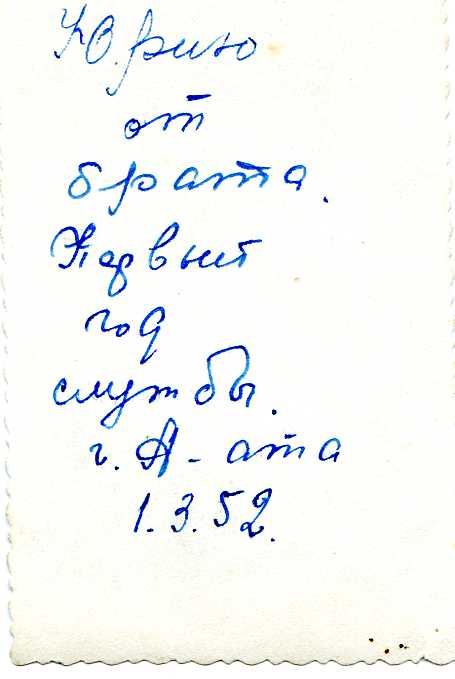 Юрию
от
брата.
Первый
год
службы.
г. А-ата
1.3.52.